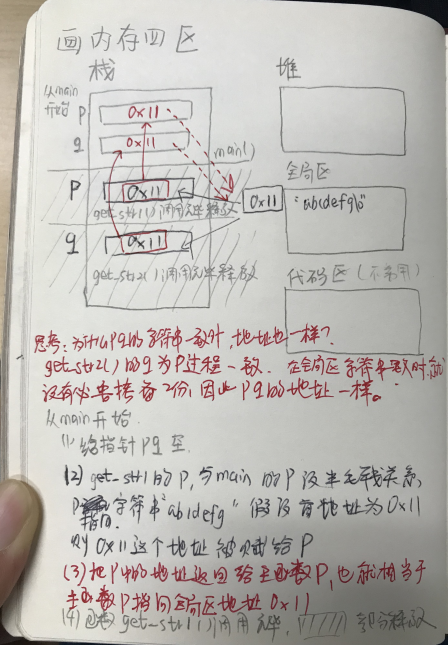 画内存四区
栈
堆
从main
开始
p 0x11
q 0x11
main()
全局区
p 0x11
0x11
"abcdefg\0"
get_str1()调用完毕释放
q 0x11
get_str2()调用完毕释放
代码区(不常用)
思考:为什么pq的字符串一致时,地址也一样?
get_str2()的q为p过程一致. 在全局区字符串 时,就
没有必要拷贝2份,因此pq的地址一样。
从main开始.
(1) 给指针pq空.
(2) get_str1的p,与main的p没半毛钱关系,
p指向字符串"abcdefg"假设首地址为0x11
则0x11这个地址被赋给p
(3) 把p中的地址返回给主函数p,也就相当于
主函数p指向全局区地址0x11
(4) 函数get_str1()调用完毕, 部分释放